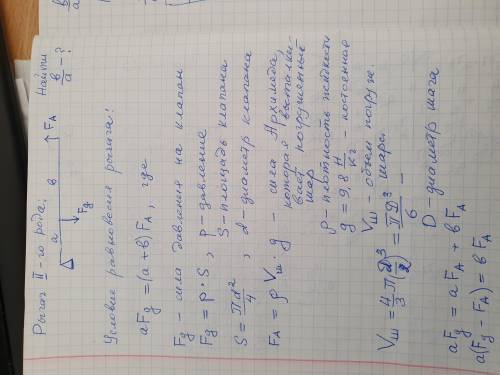 Рычаг II-го рода;
Найти
в/а - ?
а
в
F_A
F_g
Условие равновесия рычага:
aF_g = (a+в)F_A, где
F_g - сила давления на клапан
F_g = P·S, P - давление
S - площадь клапана
S = πd²/4, d - диаметр клапана
F_A = ρ V_ш · g - сила Архимеда,
которая
погруженный
шар
ρ - плотность жидкости
g = 9,8 Н/кг - постоянная
V_ш - объем погруж.
шара.
V_ш = 4/3 π(D/2)³ = πD³/6 -
D - диаметр шага
aF_g = aF_A + вF_A
a(F_g - F_A) = вF_A